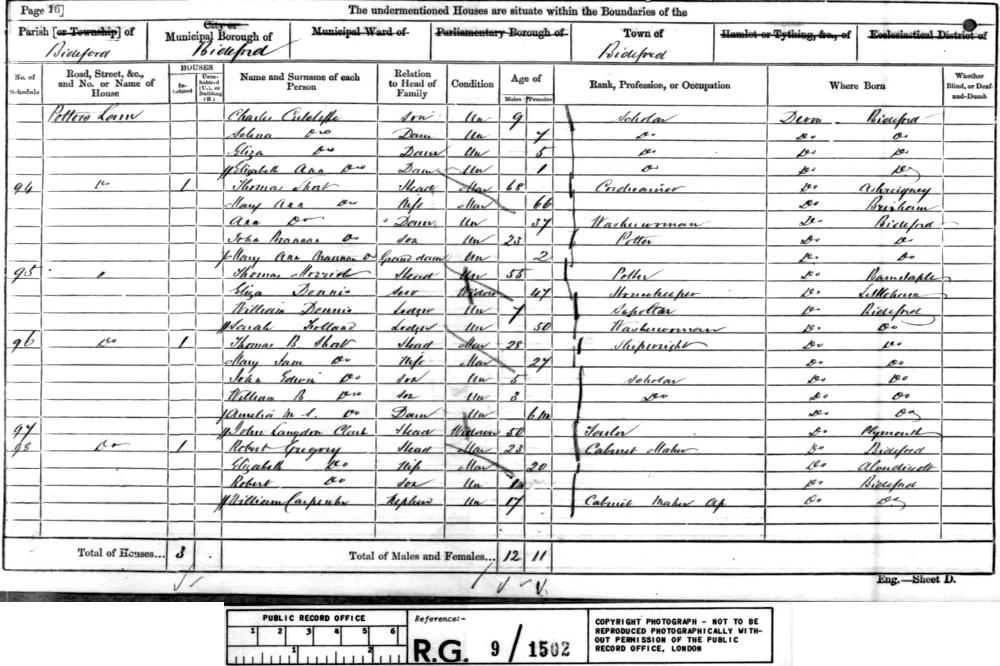 Page 16] The undermentioned Houses are situate within the Boundaries of the
Parish [or Township] of Bideford City or Municipal Borough of Bideford Municipal Ward of Parliamentary Borough of Town of Bideford Hamlet or Tything, &c., of Ecclesiastical District of
No. of Schedule Road, Street, &c., and No. or Name of House HOUSES Inhabited Uninhabited (U.), or Building (B.) Name and Surname of each Person Relation to Head of Family Condition Age of Males Females Rank, Profession, or Occupation Where Born Whether Blind, or Deaf-and-Dumb
Potters Lane Charles son Un 9 Scholar Devon Bideford
Selina Do Daur Un 7 Do Do Do
Eliza Do Daur Un 5 Do Do Do
Elizabeth Ann Do Daur Un 1 Do Do Do
94 Do 1 Thomas Short Head Mar 68 Cordwainer Do Ashreigney
Mary Ann Do Wife Mar 66 Do Brixham
Ann Do Daur Un 37 Washerwoman Do Bideford
John Brannan Do son Un 23 Potter Do Do
Mary Ann Brannan Do Grand daur Un 2 Do Do
95 Thomas Head Un 55 Potter Do Barnstaple
Eliza Dennis Serv Widow 47 Housekeeper Do Littleham
William Dennis Lodger Un 7 Do Bideford
Sarah Lodger Un 50 Washerwoman Do Do
96 Do 1 Thomas B Short Head Mar 28 Shipwright Do Do
Mary Jane Do Wife Mar 27 Do Do
John Edwin Do son Un 5 Scholar Do Do
William B Do son Un 3 Do Do Do
Amelia M S. Do Daur Un 6m Do Do
97 John Langdon Clark Head Widower 50 Do Plymouth
98 Do 1 Robert Gregory Head Mar 23 Cabinet Maker Do Bideford
Elizabeth Do Wife Mar 20 Do Alwington
Robert Do son Un 1m Do Bideford
William Carpenter Nephew Un 17 Cabinet Maker Ap Do Do
Total of Houses... 3 Total of Males and Females... 12 11
Eng.—Sheet D.
PUBLIC RECORD OFFICE
1 2 3 4 5 6
1 2
Reference:-
R.G. 9/1502
COPYRIGHT PHOTOGRAPH - NOT TO BE
REPRODUCED PHOTOGRAPHICALLY WITH-
OUT PERMISSION OF THE PUBLIC
RECORD OFFICE, LONDON